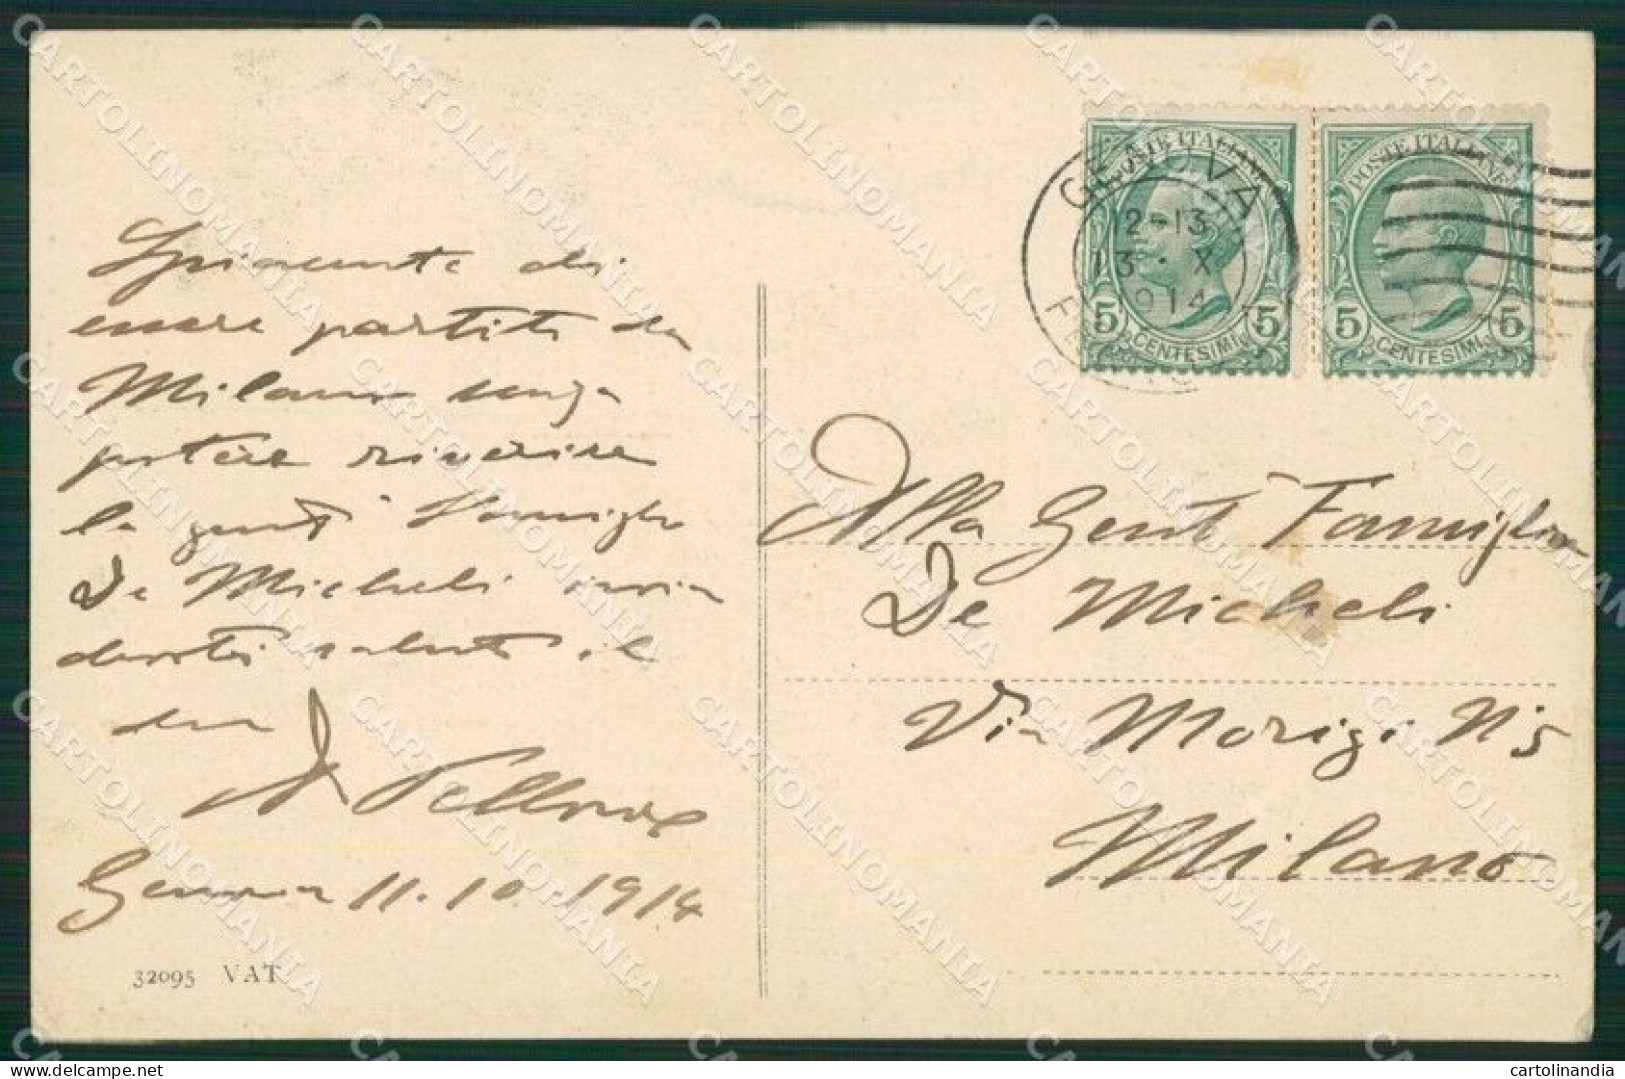 Spiacente di
essere partiti da
Milano senza
potere riverire
la gent Famiglia
De Micheli invia
devoti saluti il
Genova 11.10.1914
32095 VAT
GENOVA
12-13
13 X
1914
POSTE ITALIANE
5 CENTESIMI 5
POSTE ITALIANE
5 CENTESIMI 5
Alla Gent Famiglia
De Micheli
Via Morigi N 5
Milano
CARTOLINOMANIA
cartolinandia